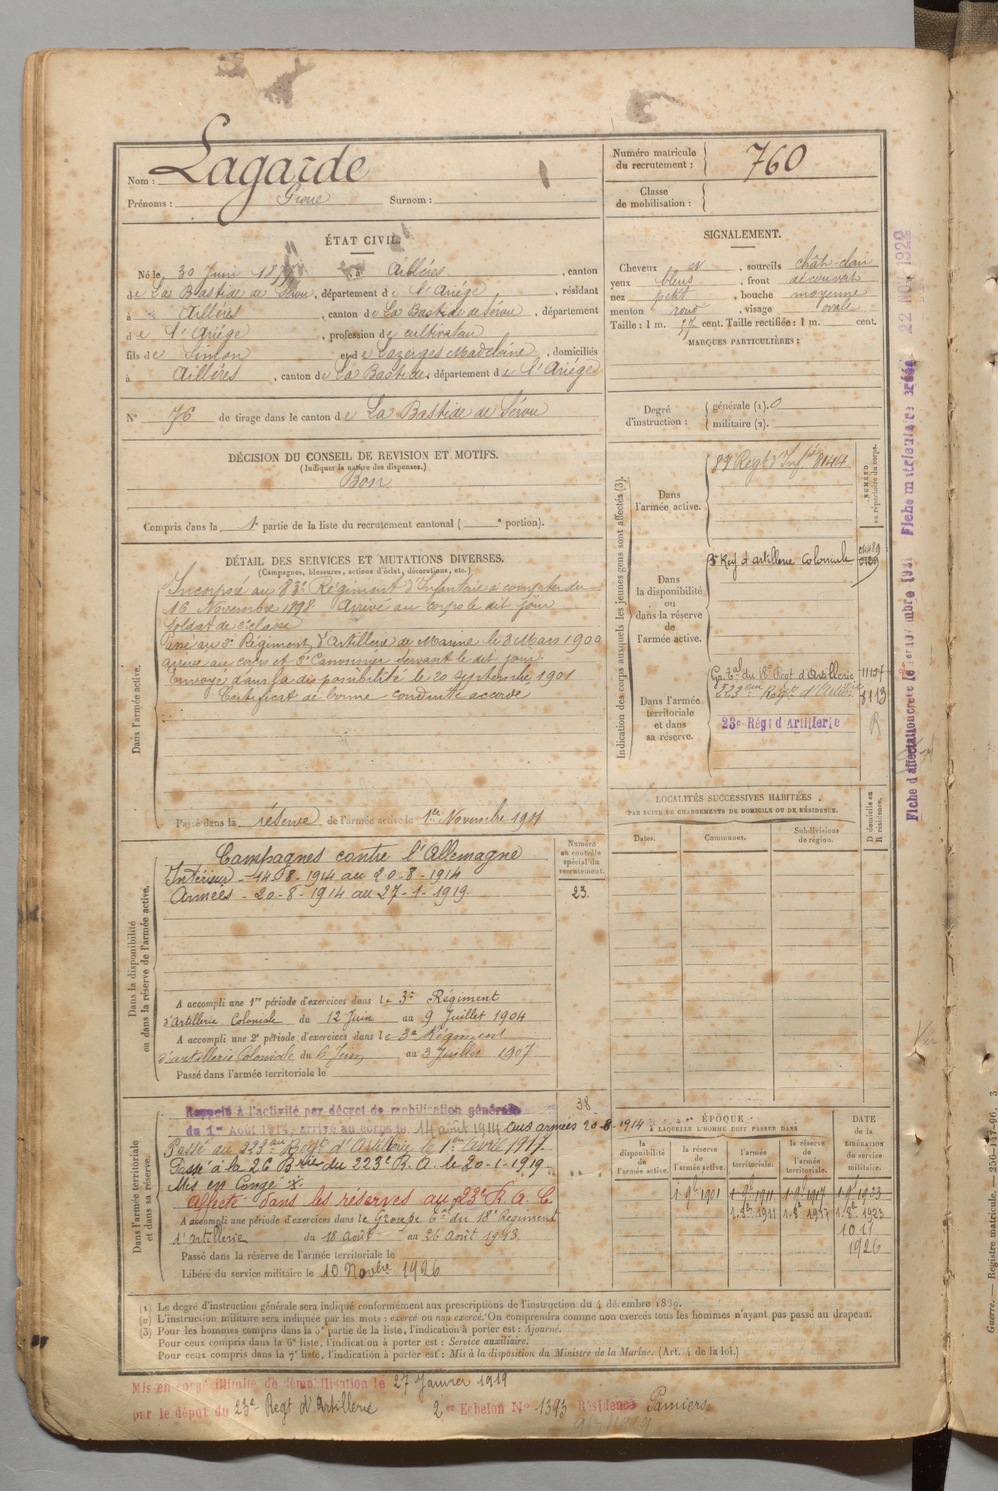 Nom : Lagarde
Prénoms : Surnom :
Numéro matricule
du recrutement : 760
Classe
de mobilisation :
ÉTAT CIVIL.
Né le 30 Juin à Aillères , canton
de La Bastide de Sérou , département de l'Ariége , résidant
à Aillères , canton de La Bastide de Sérou , département
de l'Ariége , profession de cultivateur
fils de Simon et de Lazerges Madeleine , domiciliés
à Aillères , canton de La Bastide , département de l'Ariége
N° 76 de tirage dans le canton de La Bastide de Sérou
SIGNALEMENT.
Cheveux et , sourcils chât-clair
yeux bleus , front découvert
nez petit , bouche moyenne
menton rond , visage ovale
Taille : 1 m. 57 cent. Taille rectifiée : 1 m. cent.
MARQUES PARTICULIÈRES :
Degré
d'instruction :
générale (1). 0
militaire (2).
DÉCISION DU CONSEIL DE REVISION ET MOTIFS.
(Indiquer la nature des dispenses.)
Bon
Compris dans la 1e partie de la liste du recrutement cantonal ( e portion).
DÉTAIL DES SERVICES ET MUTATIONS DIVERSES.
(Campagnes, blessures, actions d'éclat, décorations, etc.)
Dans l'armée active.
Incorporé au 83e Régiment d'Infanterie à compter du
16 Novembre 1898 Arrivé au corps le dit jour
soldat de 2e classe
Passé au 3e Régiment d'Artillerie de Marine le 3 Mars 1900
arrivé au corps et 2e Canonnier servant le dit jour
Envoyé dans la disponibilité le 20 septembre 1901
Certificat de bonne conduite accordé
Passé dans la réserve de l'armée active le 1er Novembre 1901
Indication des corps auxquels les jeunes gens sont affectés (3).
NUMÉRO
au répertoire du corps.
Dans
l'armée active.
83 Regt d'Infie
Dans
la disponibilité
ou
dans la réserve
de
l'armée active.
3e Reg d'artillerie Coloniale
Dans l'armée
territoriale
et dans
sa réserve.
Gr. 2al du 18e Regt d'Artillerie
223eme Regt d'Artie 8113
23e Régt d'Artillerie R
LOCALITÉS SUCCESSIVES HABITÉES
PAR SUITE DE CHANGEMENTS DE DOMICILE OU DE RÉSIDENCE.
Dates.
Communes.
Subdivisions
de région.
D domicile ou
R résidence.
Dans la disponibilité
ou dans la réserve de l'armée active.
Numéro
au contrôle
spécial du
recrutement.
23.
Campagnes contre l'Allemagne
Intérieur - 14-8-1914 au 20-8-1914
Armées - 20-8-1914 au 27-1-1919.
A accompli une 1re période d'exercices dans le 3e Régiment
d'Artillerie Coloniale du 12 Juin au 9 Juillet 1904
A accompli une 2e période d'exercices dans le 3e Régiment
d'artillerie Coloniale du 6 Juin au 3 Juillet 1907
Passé dans l'armée territoriale le
Dans l'armée territoriale
et dans sa réserve.
38
Rappelé à l'activité par décret de mobilisation générale
du 1er Août 1914, arrivé au corps le 14 août 1914 aux armées 20-8-1914
Passé au 223eme Regt d'Artillerie le 1er Avril 1917.
Passé à la 26 Btrie du 223e R.A. le 20-1-1919.
Mis en Congé
Affecté dans les réserves au 23e R.A.C.
A accompli une période d'exercices dans le Groupe 6al du 18e Régiment
d'artillerie du 18 Août au 26 Août 1913
Passé dans la réserve de l'armée territoriale le
Libéré du service militaire le 10 Novbre 1926
ÉPOQUE
À LAQUELLE L'HOMME DOIT PASSER DANS
la
disponibilité
de
l'armée active.
la réserve
de
l'armée active.
l'armée
territoriale.
la réserve
de
l'armée
territoriale.
DATE
de la
LIBÉRATION
du service
militaire.
1-9bre 1901 1-9bre 1911 1-9bre 1917 1-9bre 1923
1-8bre 1911 1-8bre 1917 1-8bre 1923
10 11
1926
(1) Le degré d'instruction générale sera indiqué conformément aux prescriptions de l'instruction du 4 décembre 1889.
(2) L'instruction militaire sera indiquée par les mots : exercé ou non exercé. On comprendra comme non exercés tous les hommes n'ayant pas passé au drapeau.
(3) Pour les hommes compris dans la 5e partie de la liste, l'indication à porter est : Ajourné.
Pour ceux compris dans la 6e liste, l'indication à porter est : Service auxiliaire.
Pour ceux compris dans la 7e liste, l'indication à porter est : Mis à la disposition du Ministre de la Marine. (Art. 4 de la loi.)
Mis en congé illimité de démobilisation le 27 Janvier 1919
par le dépôt du 23e Regt d'Artillerie 2e Echelon N° 1393 Résidence Pamiers
22 NOV 1922
Guerre. — Registre matricule.